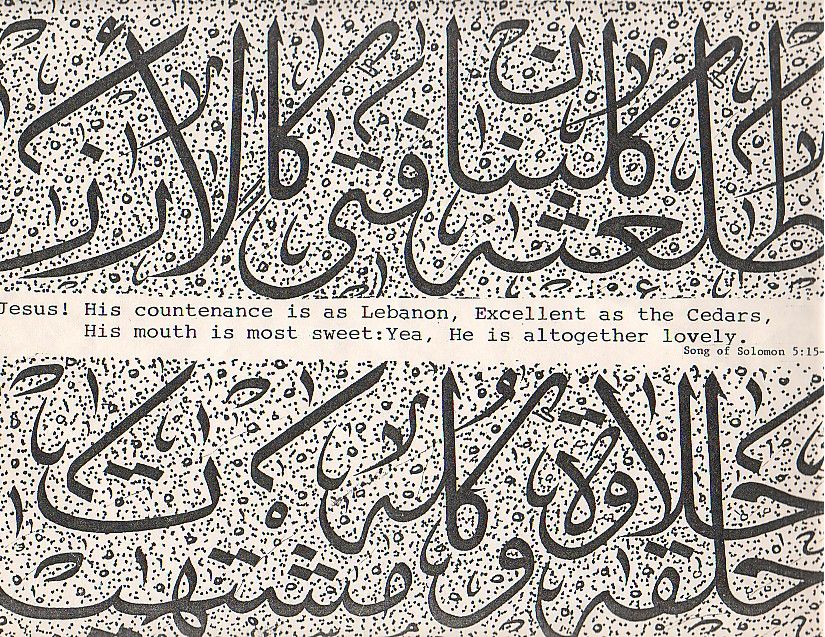 طلعته كلبنان فتى كالأرز
Jesus! His countenance is as Lebanon, Excellent as the Cedars,
His mouth is most sweet:Yea, He is altogether lovely.
Song of Solomon 5:15-
حلقه حلاوة وكله مشتهيات